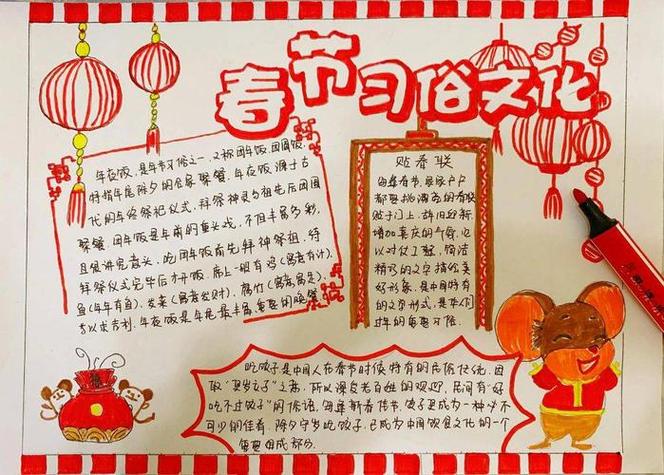 春节习俗文化
年夜饭,是年节习俗之一,又称团年饭、团圆饭,
特指年尾除夕的合家聚餐。年夜饭源于古
代的年终祭祀仪式,拜祭神灵与祖先后团圆
聚餐。团年饭是年前的重头戏,不但丰富多彩,
且很讲究意义。吃团年饭前先拜神祭祖,待
拜祭仪式完毕后才开饭。席上一般有鸡(寓意有计)、
鱼(年年有鱼)、发菜(寓意发财)、腐竹(寓意富足)、
等以求吉利。年夜饭是年尾最丰盛、重要的晚餐
贴春联
每年春节,家家户户
都要挑漂亮的春联
贴于门上,辞旧迎新,
增加喜庆的气氛,它
以对仗工整、简洁
精巧的文字描绘美
好形象,是中国特有
的文学形式,是人们
过年的重要习俗。
吃饺子是中国人在春节时候特有的民俗文化,因
取"更岁交子"之意,所以深受老百姓的欢迎,民间有"好
吃不过饺子"的俗语,每年新春佳节,饺子更成为一种必不
可少的佳肴。除夕守岁吃饺子,已成为中国饮食文化的一个
重要组成部分。
福